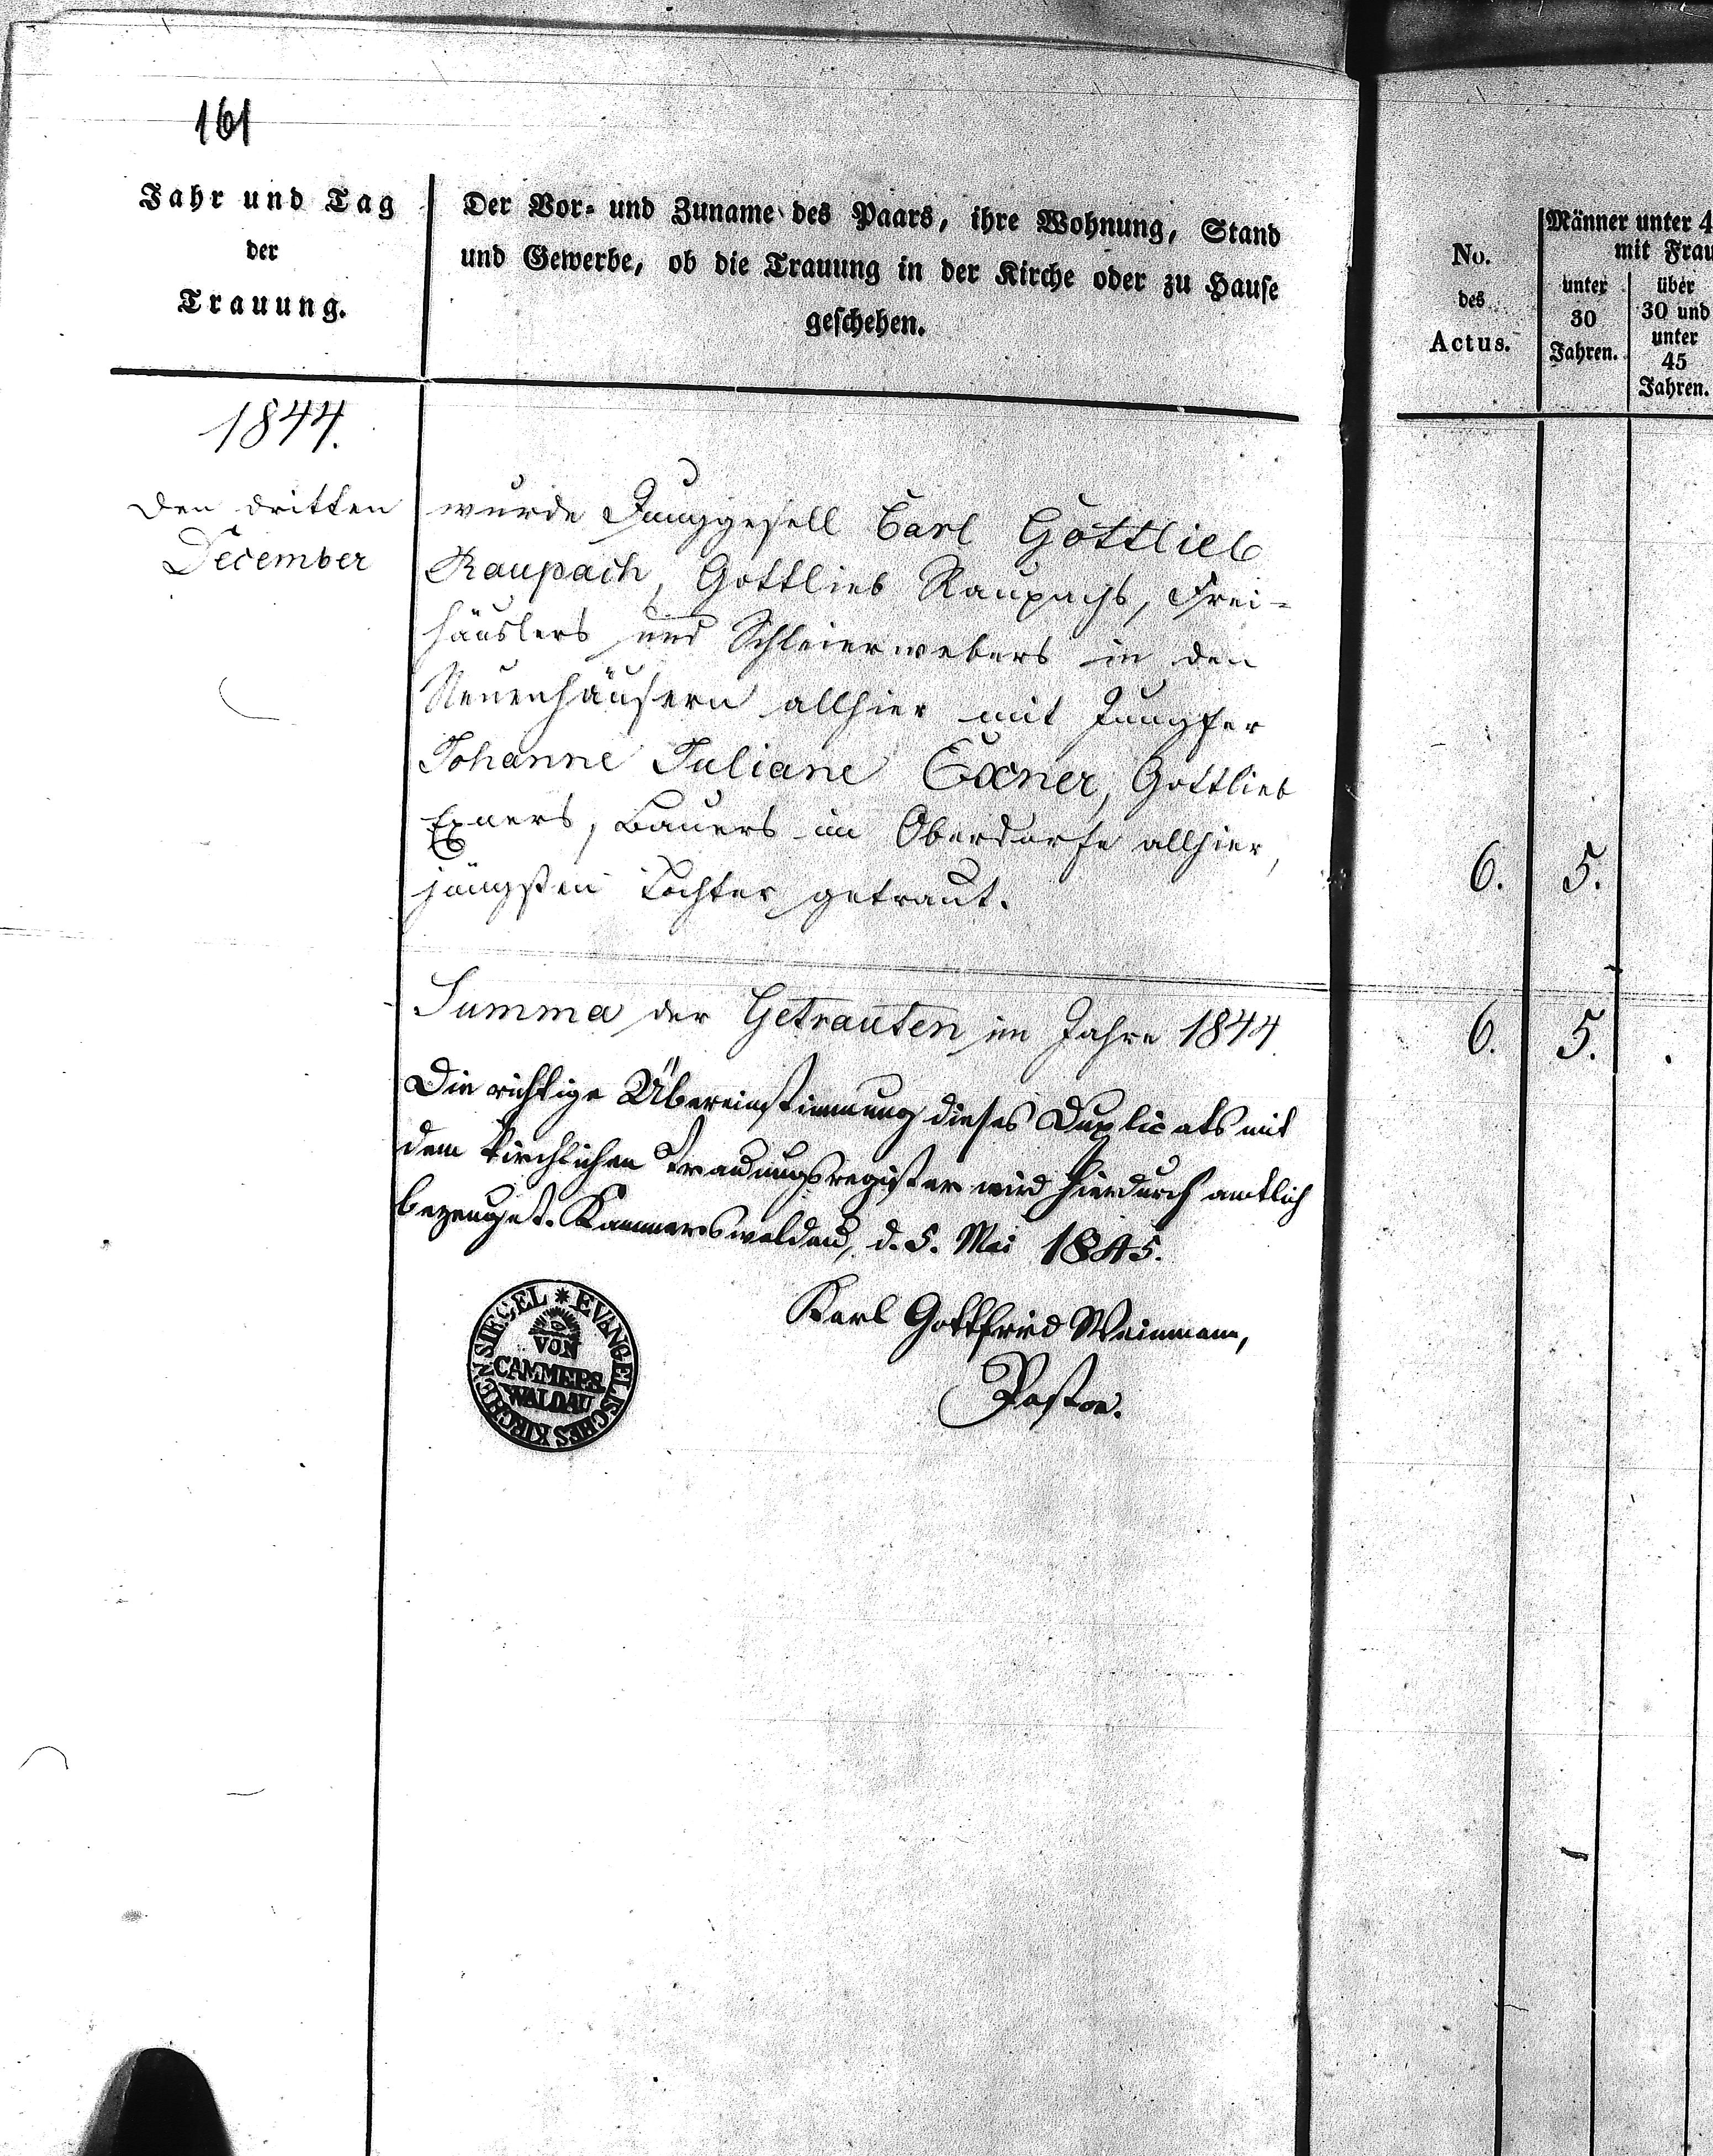 161
Jahr und Tag
der
Trauung.
Der Vor- und Zuname des Paars, ihre Wohnung, Stand
und Gewerbe, ob die Trauung in der Kirche oder zu Hause
geschehen.
1844.
den dritten
December
wurde Junggesell Carl Gottlieb
Raupach, Gottlieb Raupachs, Frei-
häuslers und Schleierwebers in den
Neuenhäusern allhier mit Jungfer
Johanne Juliane Exner, Gottlieb
Exners, Bauers im Oberdorfe allhier,
jüngsten Tochter getraut.
Summa der Getrauten im Jahre 1844.
Die richtige Übereinstimmung dieses Duplicats mit
dem kirchlichen Trauungsregister wird hierdurch amtlich
bezeuget. Kammerswaldau, d. 5. Mai 1845.
Karl Gottfried Weinmann,
Pastor.
EVANGELISCHES KIRCHENSIEGEL
VON
CAMMERS
WALDAU
No.
des
Actus.
Männer unter 4
mit Frau
unter
30
Jahren.
über
30 und
unter
45
Jahren.
6. 5.
6. 5. .